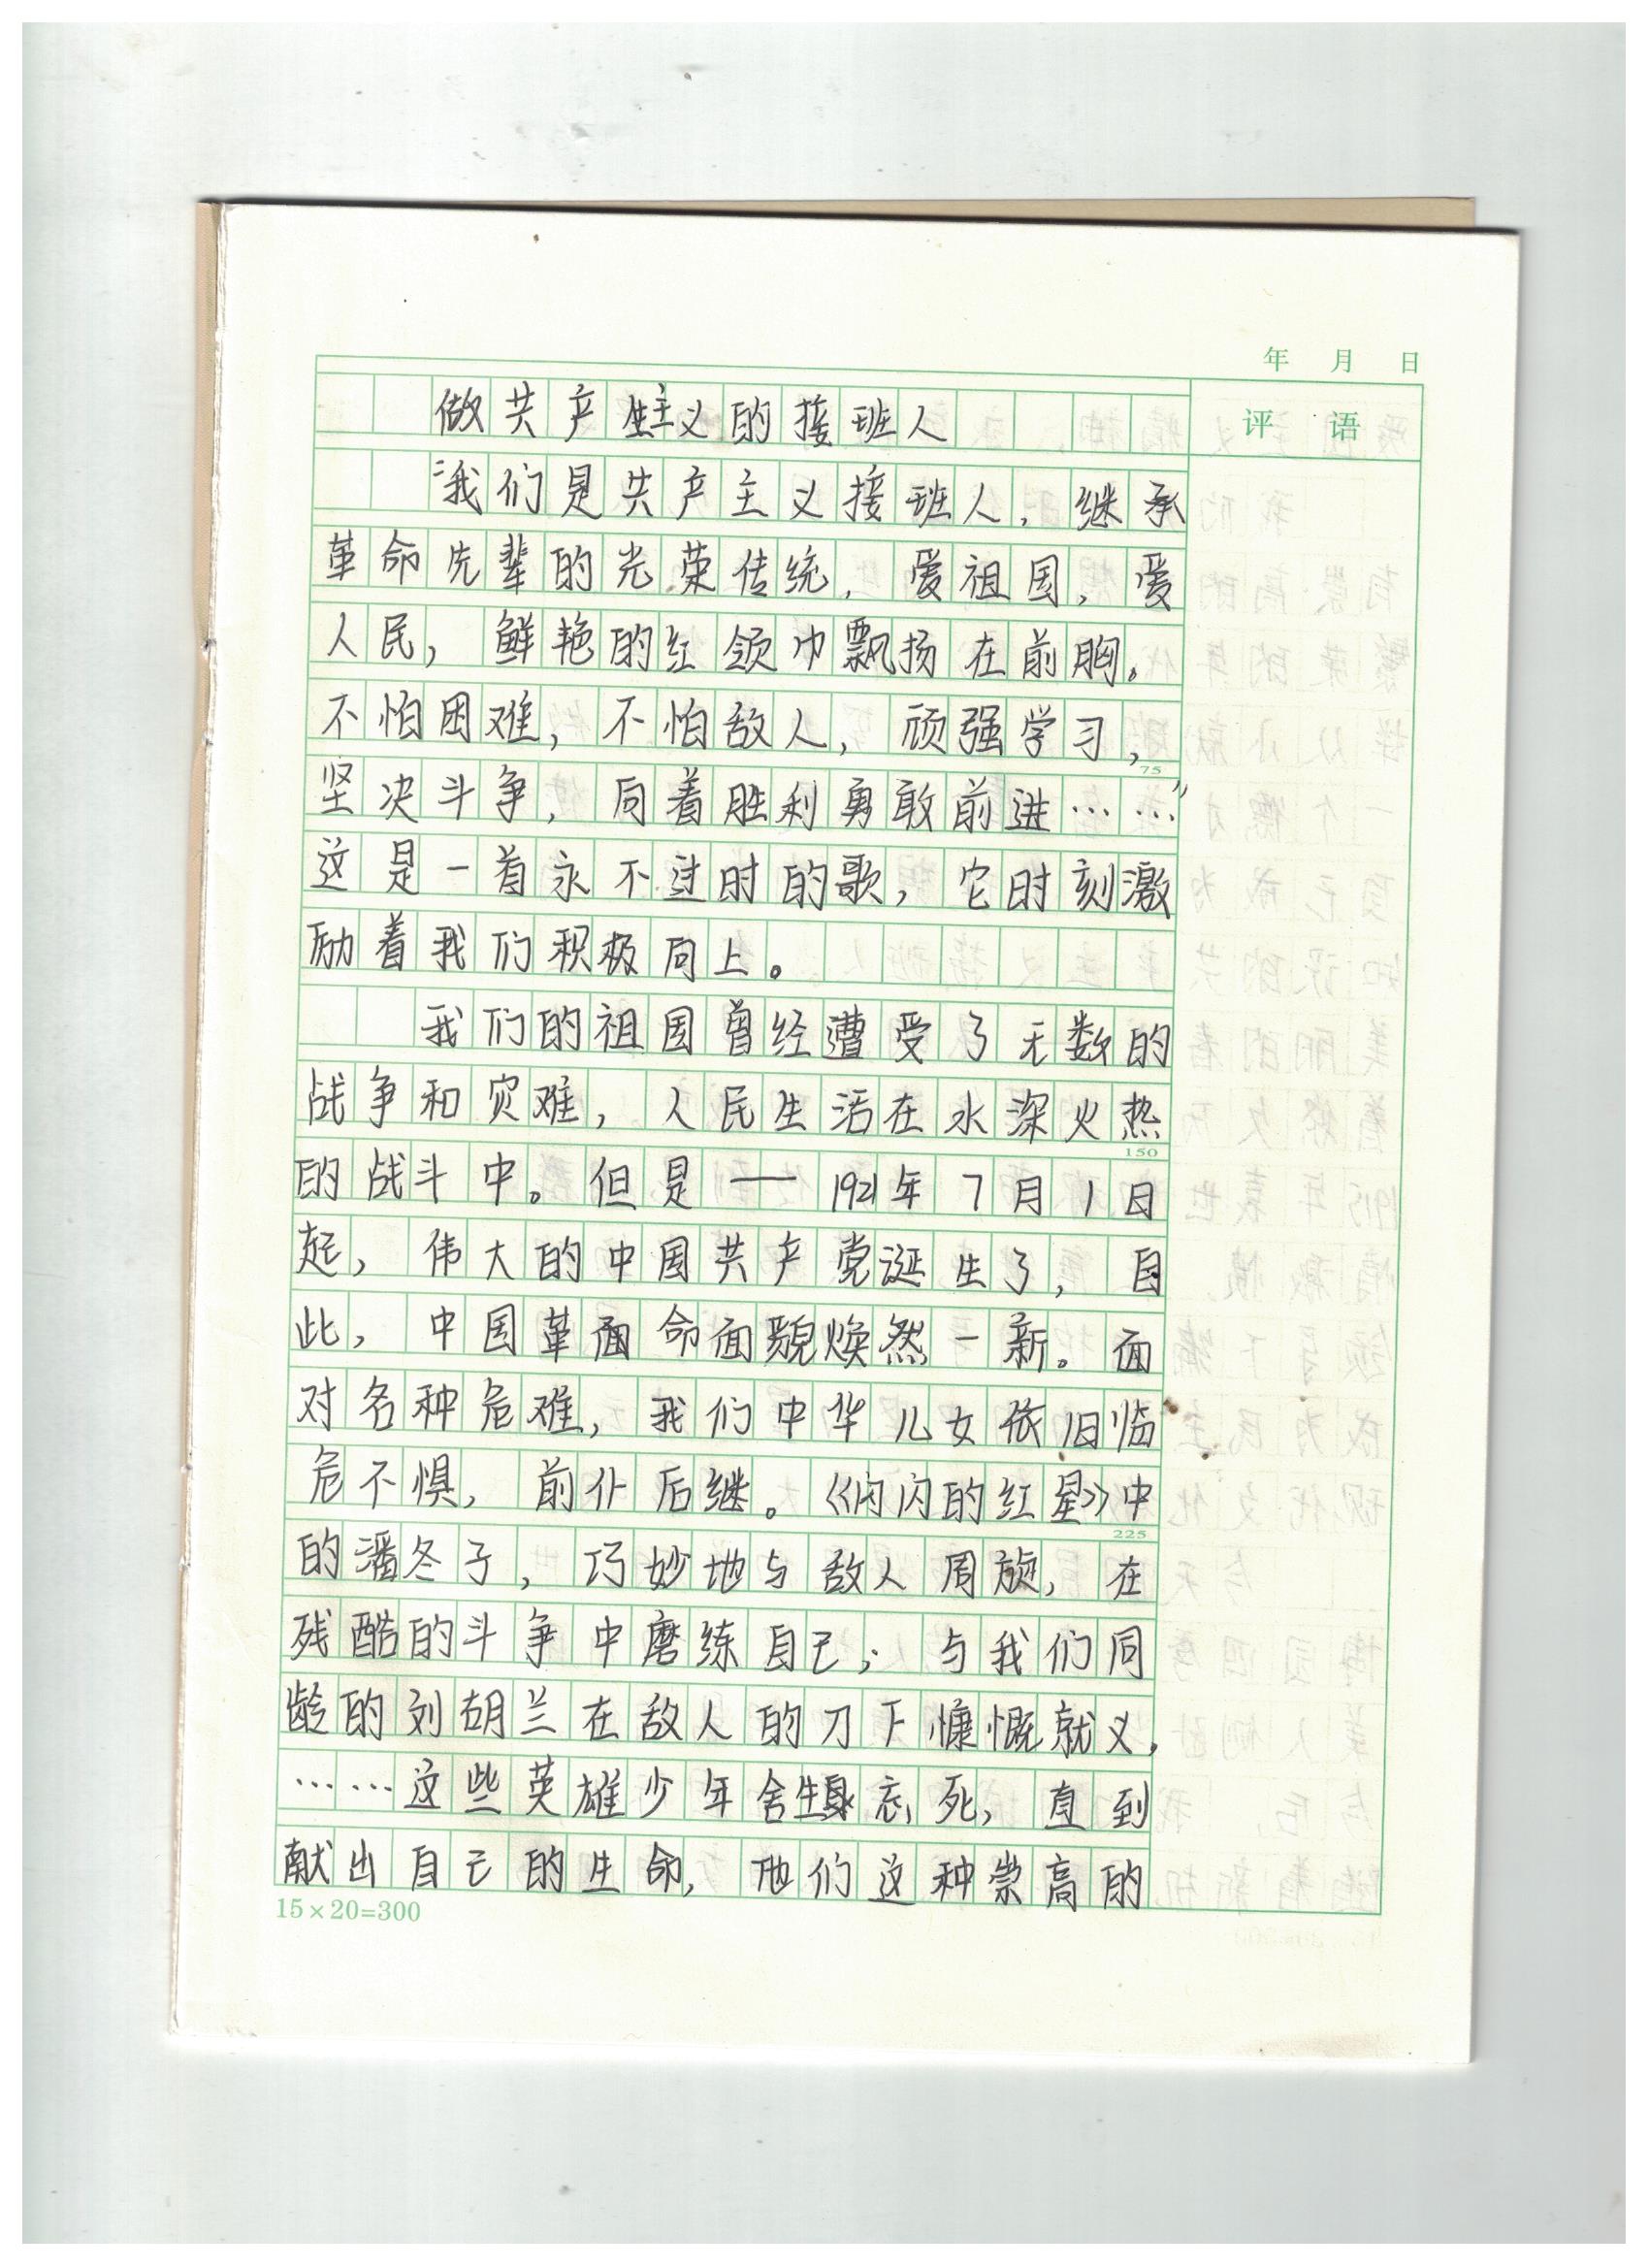 年 月 日
评 语
做共产主义的接班人
“我们是共产主义接班人，继承
革命先辈的光荣传统，爱祖国，爱
人民，鲜艳的红领巾飘扬在前胸。
不怕困难，不怕敌人，顽强学习，
75
坚决斗争，向着胜利勇敢前进……”
这是一首永不过时的歌，它时刻激
励着我们积极向上。
我们的祖国曾经遭受了无数的
战争和灾难，人民生活在水深火热
150
的战斗中。但是——1921年7月1日
起，伟大的中国共产党诞生了，自
此，中国革命面貌焕然一新。面
对各种危难，我们中华儿女依旧临
危不惧，前仆后继。《闪闪的红星》中
225
的潘冬子，巧妙地与敌人周旋，在
残酷的斗争中磨练自己；与我们同
龄的刘胡兰在敌人的刀下慷慨就义，
……这些英雄少年舍生忘死，直到
献出自己的生命，他们这种崇高的
15×20=300